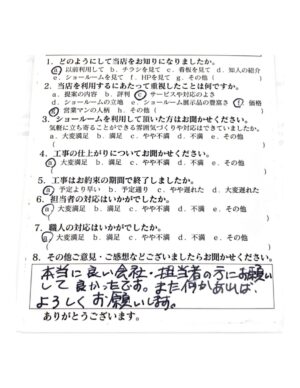 1. どのようにして当店をお知りになりましたか。
a. 以前利用して b. チラシを見て c. 看板を見て d. 知人の紹介
e. ショールームを見て f. HPを見て g. その他( )
2. 当店を利用するにあたって重視したことは何ですか。
a. 提案の内容 b. 評判 c. サービスや対応のよさ
d. ショールームの立地 e. ショールーム展示品の豊富さ f. 価格
g. 営業マンの人柄 h. その他( )
3. ショールームを利用して頂いた方はお聞かせください。
気軽に立ち寄ることができる雰囲気づくりや対応はできていましたか。
a. 大変満足 b. 満足 c. やや不満 d. 不満 e. その他
( )
4. 工事の仕上がりについてお聞かせください。
a. 大変満足 b. 満足 c. やや不満 d. 不満 e. その他
( )
5. 工事はお約束の期間で終了しましたか。
a. 予定より早い b. 予定通り c. やや遅れた d. 大変遅れた
6. 担当者の対応はいかがでしたか。
a. 大変満足 b. 満足 c. やや不満 d. 不満 e. その他
( )
7. 職人の対応はいかがでしたか。
a. 大変満足 b. 満足 c. やや不満 d. 不満 e. その他
( )
8. その他ご意見・ご感想などございましたらお聞かせください。
本当に良い会社・担当者の方にお願い
して良かったです。また何かあれば、
よろしくお願いします。
ありがとうございます。